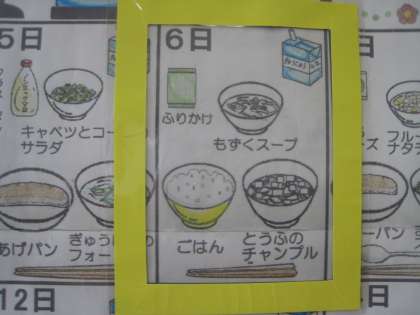 5日
6日
キャベツとコー
サラダ
ふりかけ
もずくスープ
フルー
ナタデ
あげパン
ぎゅう
フォー
ごはん
とうふの
チャンプル
パン
12日
日